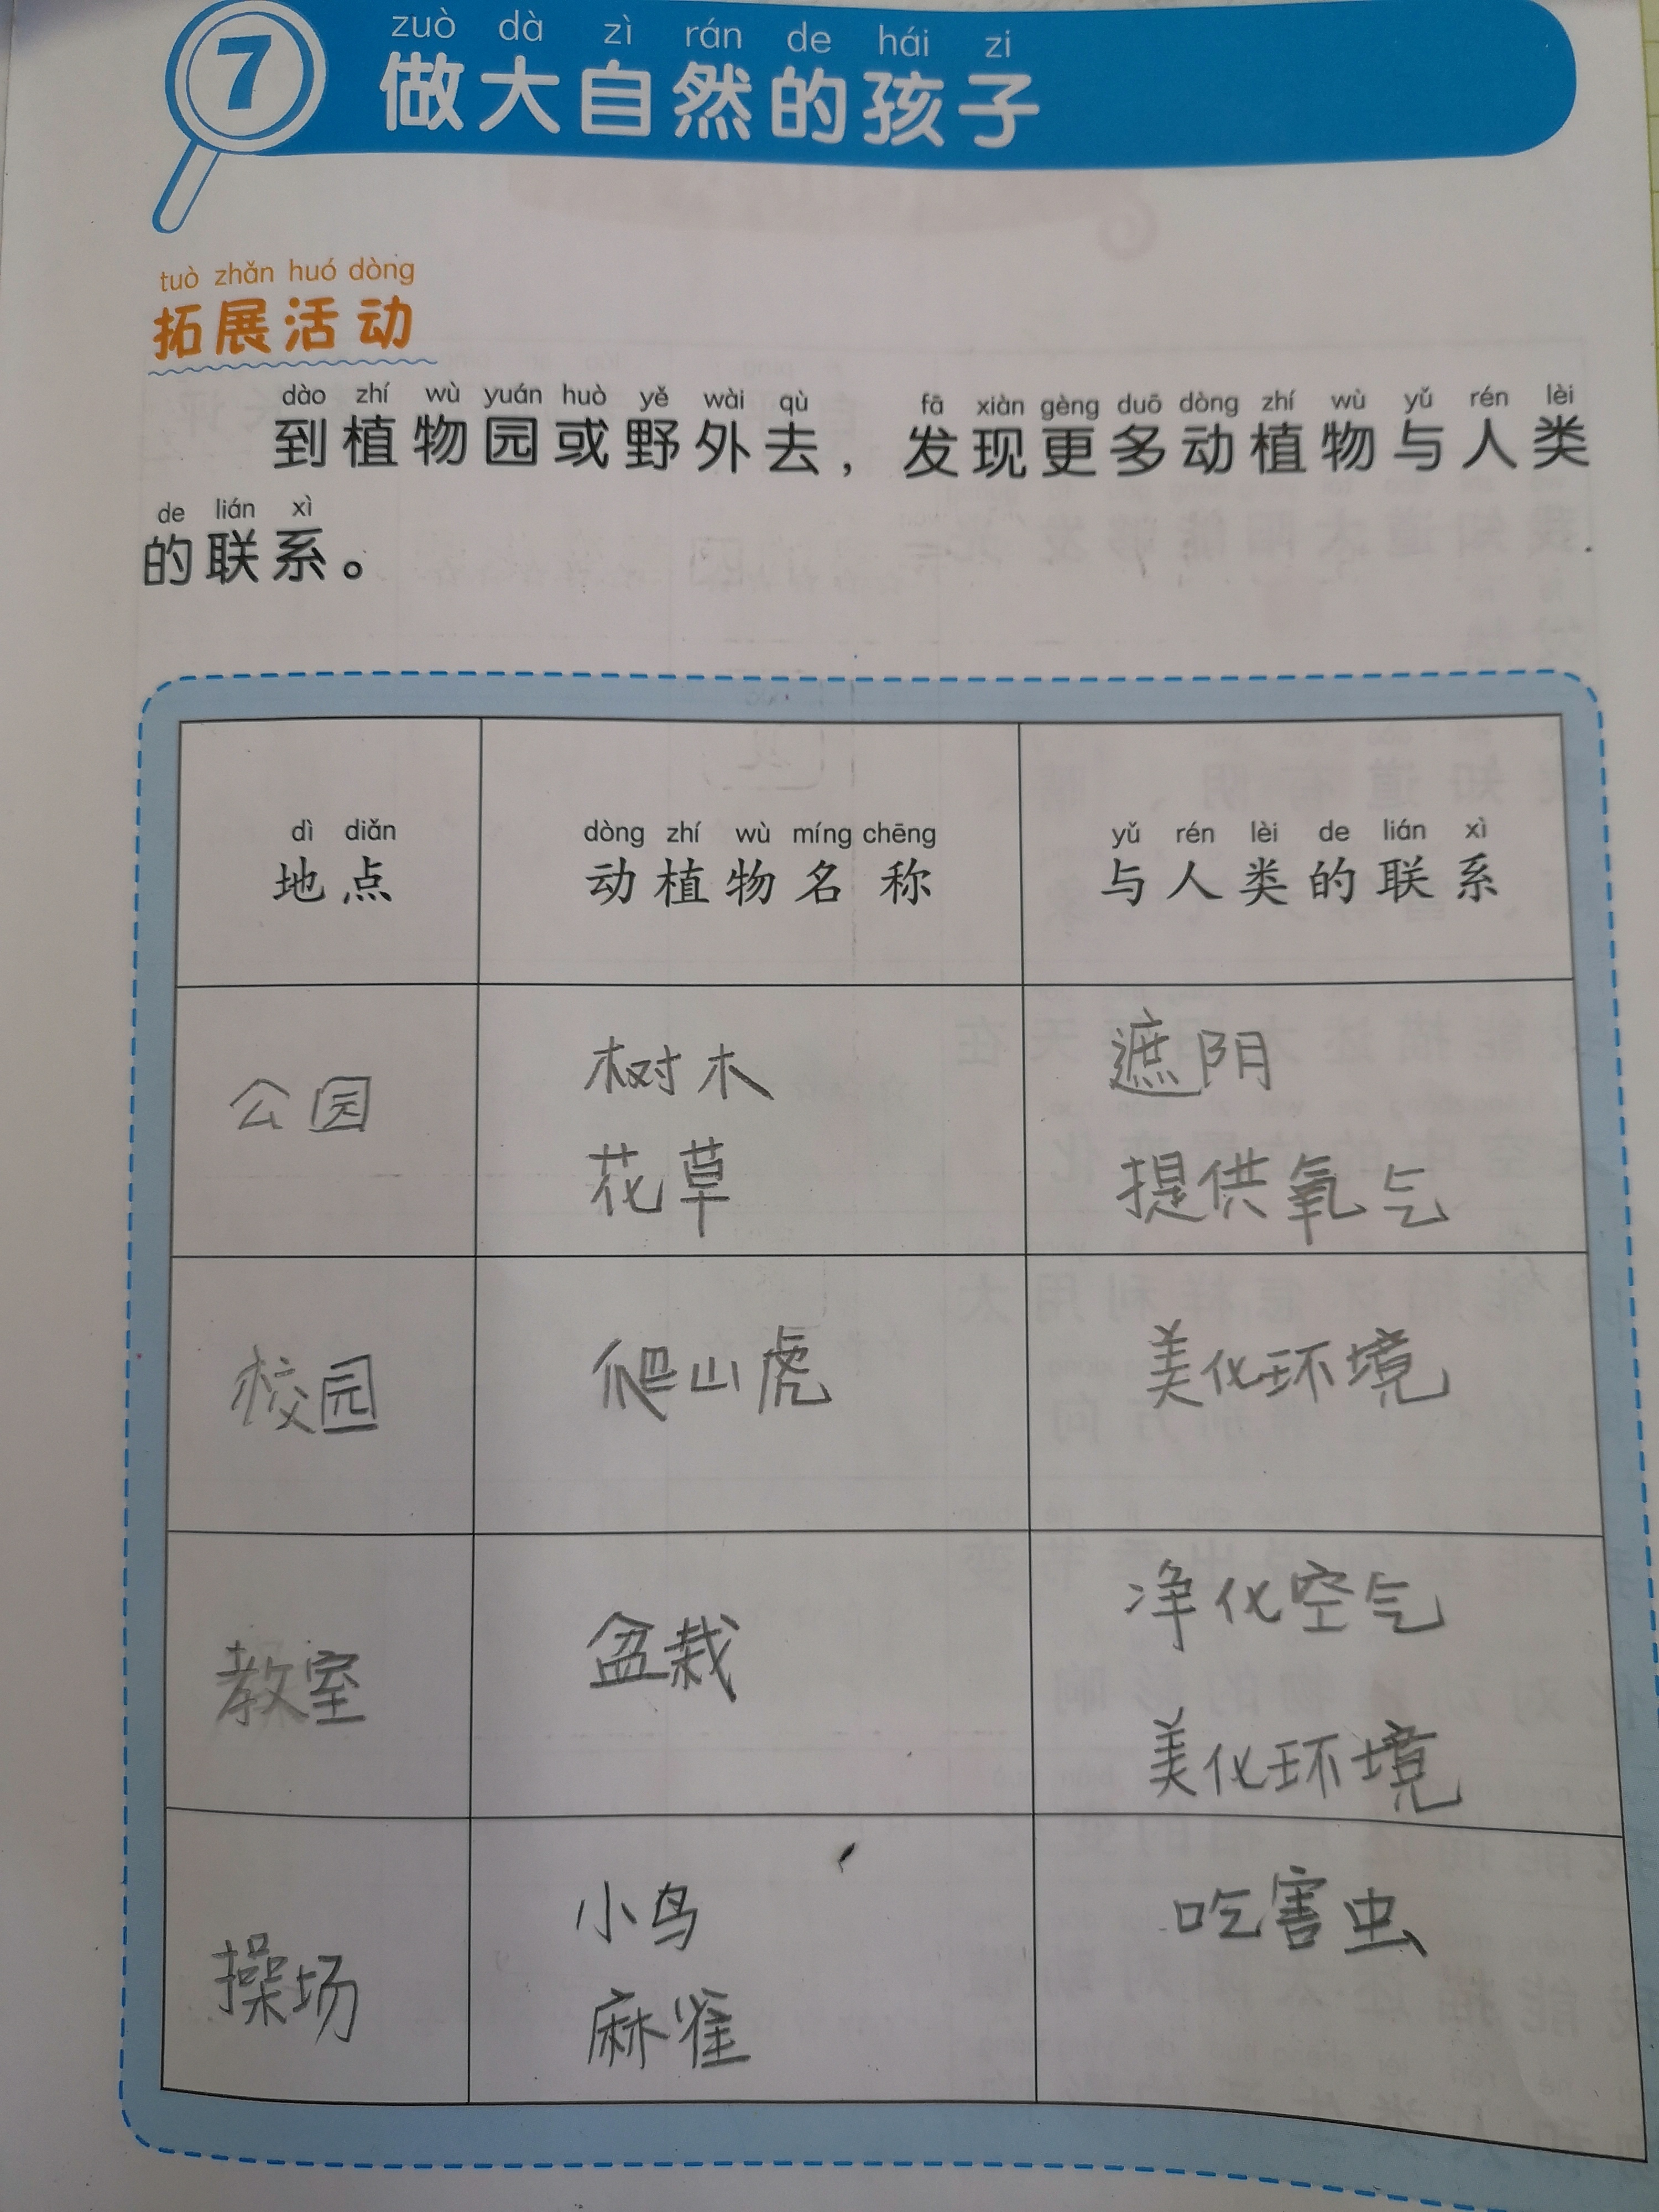 7
zuò dà zì rán de hái zi
做大自然的孩子
tuò zhǎn huó dòng
拓展活动
dào zhí wù yuán huò yě wài qù fā xiàn gèng duō dòng zhí wù yǔ rén lèi
到植物园或野外去，发现更多动植物与人类
de lián xì
的联系。
dì diǎn dòng zhí wù míng chēng yǔ rén lèi de lián xì
地点 动植物名称 与人类的联系
公园
树木
花草
遮阴
提供氧气
校园
爬山虎
美化环境
教室
盆栽
净化空气
美化环境
操场
小鸟
麻雀
吃害虫